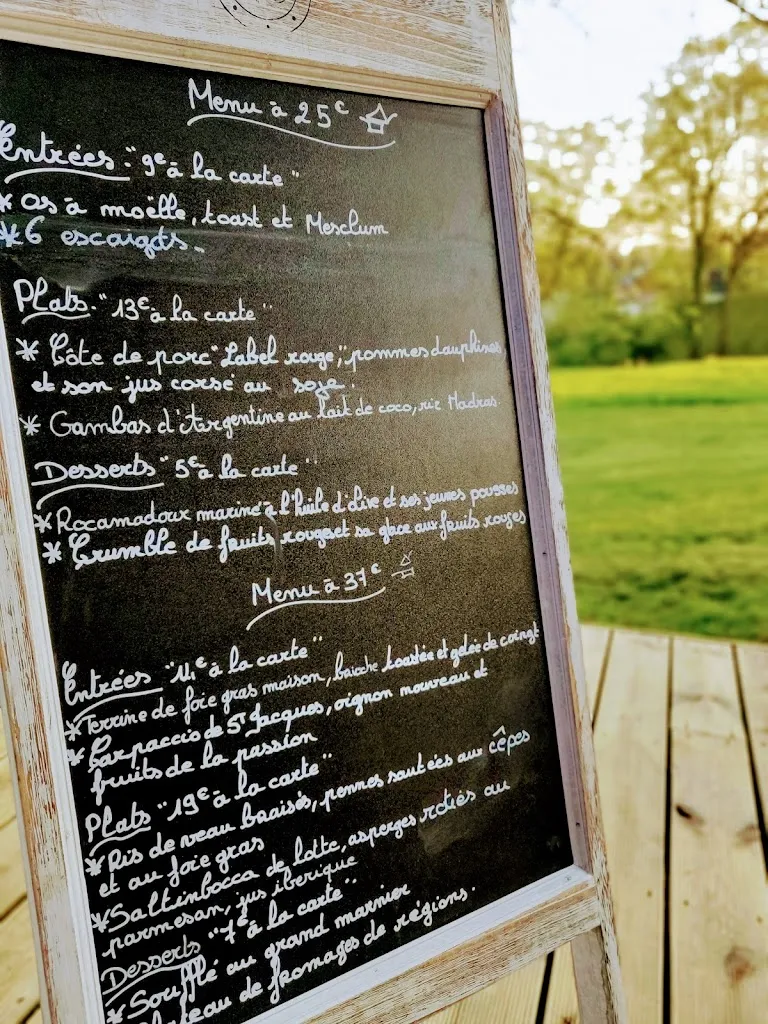 Menu à 25€
Entrées "9€ à la carte"
* os à moëlle, toast et Mesclum
* 6 escargots.
Plats "13€ à la carte"
* Côte de porc "Label rouge", pommes dauphines
et son jus corsé au soja.
* Gambas d'Argentine au lait de coco, riz Madras.
Desserts "5€ à la carte"
* Rocamadour mariné à l'huile d'olive et ses jeunes pousses
* Crumble de fruits rouges et sa glace aux fruits rouges
Menu à 37€
Entrées "11€ à la carte"
* Terrine de foie gras maison, brioche toastée et gelée de coingt
* Carpaccio de St Jacques, oignon nouveau et
fruits de la passion
Plats "19€ à la carte"
* Ris de veau braisés, pennes sautées aux cêpes
et au foie gras
* Saltinbocca de lotte, asperges roties au
parmesan, jus iberique
Desserts "7€ à la carte"
* Soufflé au grand marnier
* Plateau de fromages de régions.